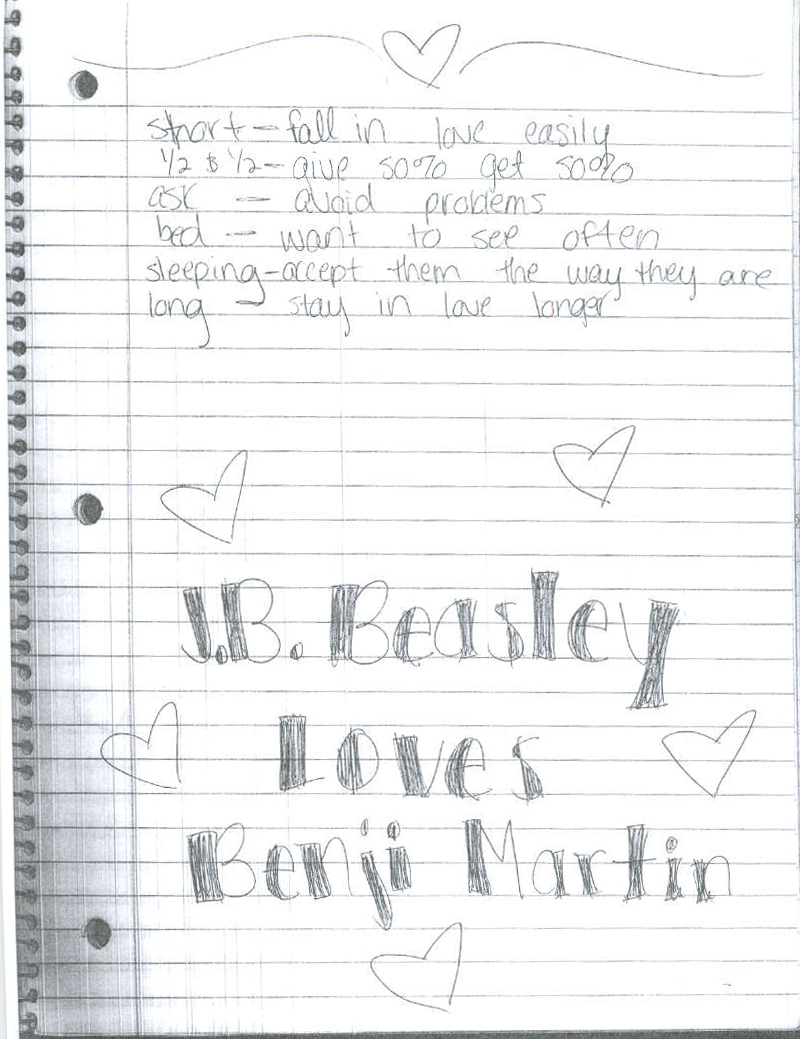 short - fall in love easily
1/2 & 1/2 - give 50% get 50%
ask - avoid problems
bed - want to see often
sleeping - accept them the way they are
long - stay in love longer
J.B. Beasley
Loves
Benji Martin